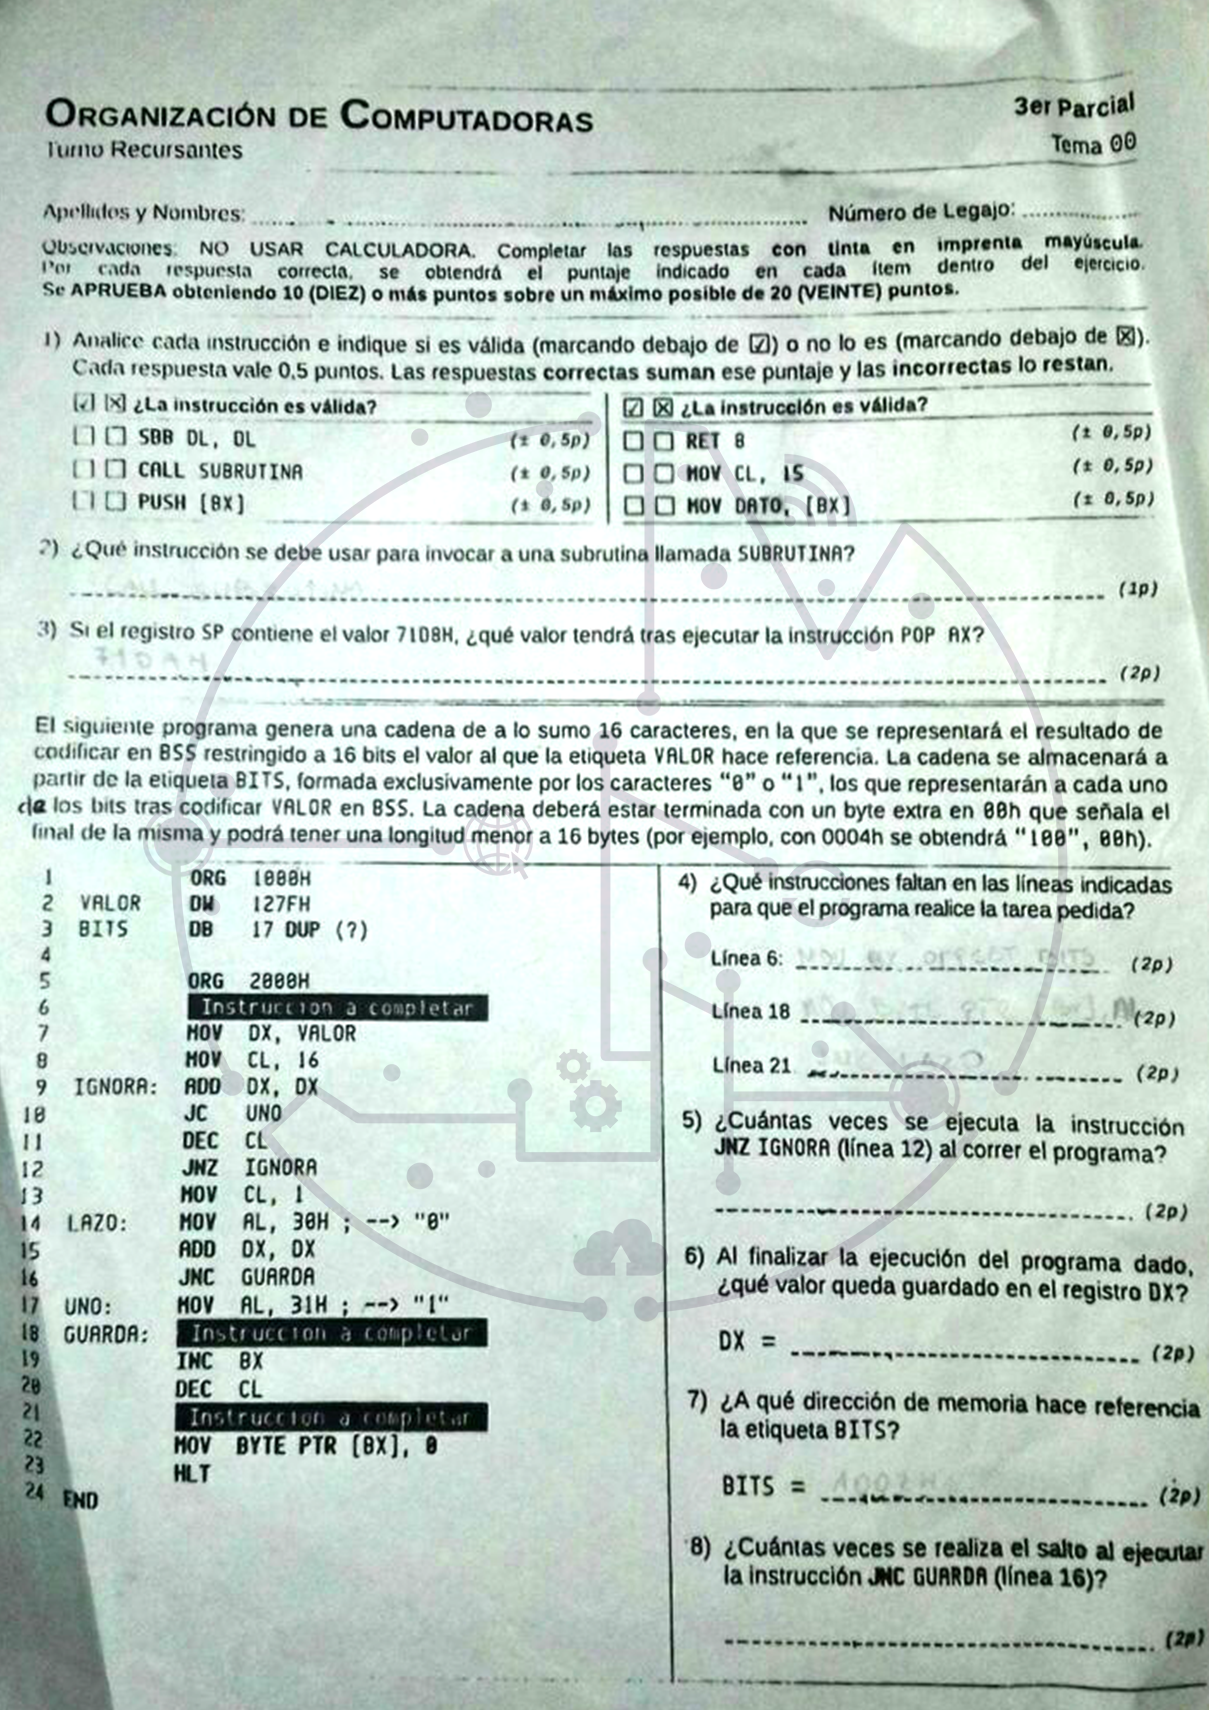 ORGANIZACIÓN DE COMPUTADORAS
3er Parcial
Turno Recursantes
Tema 00
Apellidos y Nombres:
Número de Legajo:
Observaciones: NO USAR CALCULADORA. Completar las respuestas con tinta en imprenta mayúscula.
Por cada respuesta correcta, se obtendrá el puntaje indicado en cada ítem dentro del ejercicio.
Se APRUEBA obteniendo 10 (DIEZ) o más puntos sobre un máximo posible de 20 (VEINTE) puntos.
1) Analice cada instrucción e indique si es válida (marcando debajo de ☑) o no lo es (marcando debajo de ☒).
Cada respuesta vale 0,5 puntos. Las respuestas correctas suman ese puntaje y las incorrectas lo restan.
☑ ☒ ¿La instrucción es válida?
☐ ☐ SBB DL, DL (± 0,5p)
☐ ☐ CALL SUBRUTINA (± 0,5p)
☐ ☐ PUSH [BX] (± 0,5p)
☑ ☒ ¿La instrucción es válida?
☐ ☐ RET 8 (± 0,5p)
☐ ☐ MOV CL, 15 (± 0,5p)
☐ ☐ MOV DATO, [BX] (± 0,5p)
2) ¿Qué instrucción se debe usar para invocar a una subrutina llamada SUBRUTINA?
(1p)
3) Si el registro SP contiene el valor 71D8H, ¿qué valor tendrá tras ejecutar la instrucción POP AX?
71DAH
(2p)
El siguiente programa genera una cadena de a lo sumo 16 caracteres, en la que se representará el resultado de
codificar en BSS restringido a 16 bits el valor al que la etiqueta VALOR hace referencia. La cadena se almacenará a
partir de la etiqueta BITS, formada exclusivamente por los caracteres “0” o “1”, los que representarán a cada uno
de los bits tras codificar VALOR en BSS. La cadena deberá estar terminada con un byte extra en 00h que señala el
final de la misma y podrá tener una longitud menor a 16 bytes (por ejemplo, con 0004h se obtendrá "100", 00h).
1 ORG 1000H
2 VALOR DW 127FH
3 BITS DB 17 DUP (?)
4
5 ORG 2000H
6 Instruccion a completar
7 MOV DX, VALOR
8 MOV CL, 16
9 IGNORA: ADD DX, DX
10 JC UNO
11 DEC CL
12 JNZ IGNORA
13 MOV CL, 1
14 LAZO: MOV AL, 30H ; --> "0"
15 ADD DX, DX
16 JNC GUARDA
17 UNO: MOV AL, 31H ; --> "1"
18 GUARDA: Instruccion a completar
19 INC BX
20 DEC CL
21 Instruccion a completar
22 MOV BYTE PTR [BX], 0
23 HLT
24 END
4) ¿Qué instrucciones faltan en las líneas indicadas
para que el programa realice la tarea pedida?
Línea 6: (2p)
Línea 18 (2p)
Línea 21 (2p)
5) ¿Cuántas veces se ejecuta la instrucción
JNZ IGNORA (línea 12) al correr el programa?
(2p)
6) Al finalizar la ejecución del programa dado,
¿qué valor queda guardado en el registro DX?
DX = (2p)
7) ¿A qué dirección de memoria hace referencia
la etiqueta BITS?
BITS = (2p)
8) ¿Cuántas veces se realiza el salto al ejecutar
la instrucción JNC GUARDA (línea 16)?
(2p)